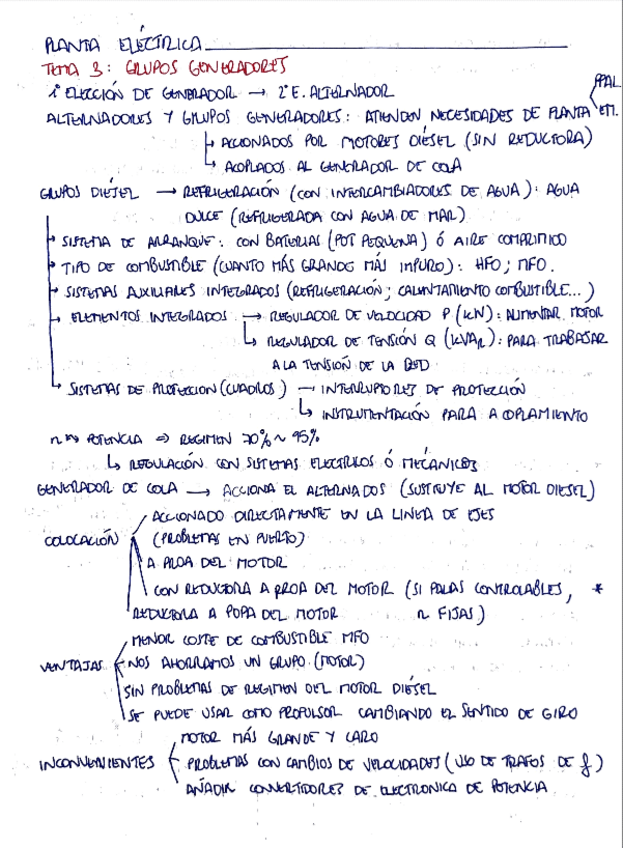 PLANTA ELÉCTRICA
TEMA 3: GRUPOS GENERADORES
1º ELECCIÓN DE GENERADOR → 2º E. ALTERNADOR
ALTERNADORES Y GRUPOS GENERADORES: ATIENDEN NECESIDADES DE PLANTA < PPAL ETI.
↳ ACCIONADOS POR MOTORES DIÉSEL (SIN REDUCTORA)
↳ ACOPLADOS AL GENERADOR DE COLA
GRUPOS DIÉSEL → REFRIGERACIÓN (CON INTERCAMBIADORES DE AGUA): AGUA
DULCE (REFRIGERADA CON AGUA DE MAR)
SISTEMA DE ARRANQUE: CON BATERIAS (POT PEQUEÑA) Ó AIRE COMPRIMIDO
TIPO DE COMBUSTIBLE (CUANTO MÁS GRANDE MÁS IMPURO): HFO; MFO.
SISTEMAS AUXILIARES INTEGRADOS (REFRIGERACIÓN; CALENTAMIENTO COMBUSTIBLE...)
ELEMENTOS INTEGRADOS → REGULADOR DE VELOCIDAD P (kN): ALIMENTAR MOTOR
↳ REGULADOR DE TENSIÓN Q (KVAR): PARA TRABAJAR
A LA TENSIÓN DE LA RED
SISTEMAS DE PROTECCION (CUADROS) → INTERRUPTORES DE PROTECCIÓN
↳ INSTRUMENTACIÓN PARA ACOPLAMIENTO
POTENCIA ⇒ REGIMEN 70% ~ 95%
↳ REGULACIÓN CON SISTEMAS ELECTRICOS Ó MECÁNICOS
GENERADOR DE COLA → ACCIONA EL ALTERNADOS (SUSTITUYE AL MOTOR DIESEL)
ACCIONADO DIRECTAMENTE EN LA LINEA DE EJES
COLOCACIÓN (PROBLEMAS EN PUERTO)
A PROA DEL MOTOR
CON REDUCTORA A PROA DEL MOTOR (SI PALAS CONTROLABLES, *
REDUCTORA A POPA DEL MOTOR n FIJAS)
MENOR COSTE DE COMBUSTIBLE MFO
VENTAJAS NOS AHORRAMOS UN GRUPO (MOTOR)
SIN PROBLEMAS DE REGIMEN DEL MOTOR DIÉSEL
SE PUEDE USAR COMO PROPULSOR CAMBIANDO EL SENTIDO DE GIRO
MOTOR MÁS GRANDE Y CARO
INCONVENIENTES PROBLEMAS CON CAMBIOS DE VELOCIDADES (USO DE TRAFOS DE f)
AÑADIR CONVERTIDORES DE ELECTRONICA DE POTENCIA